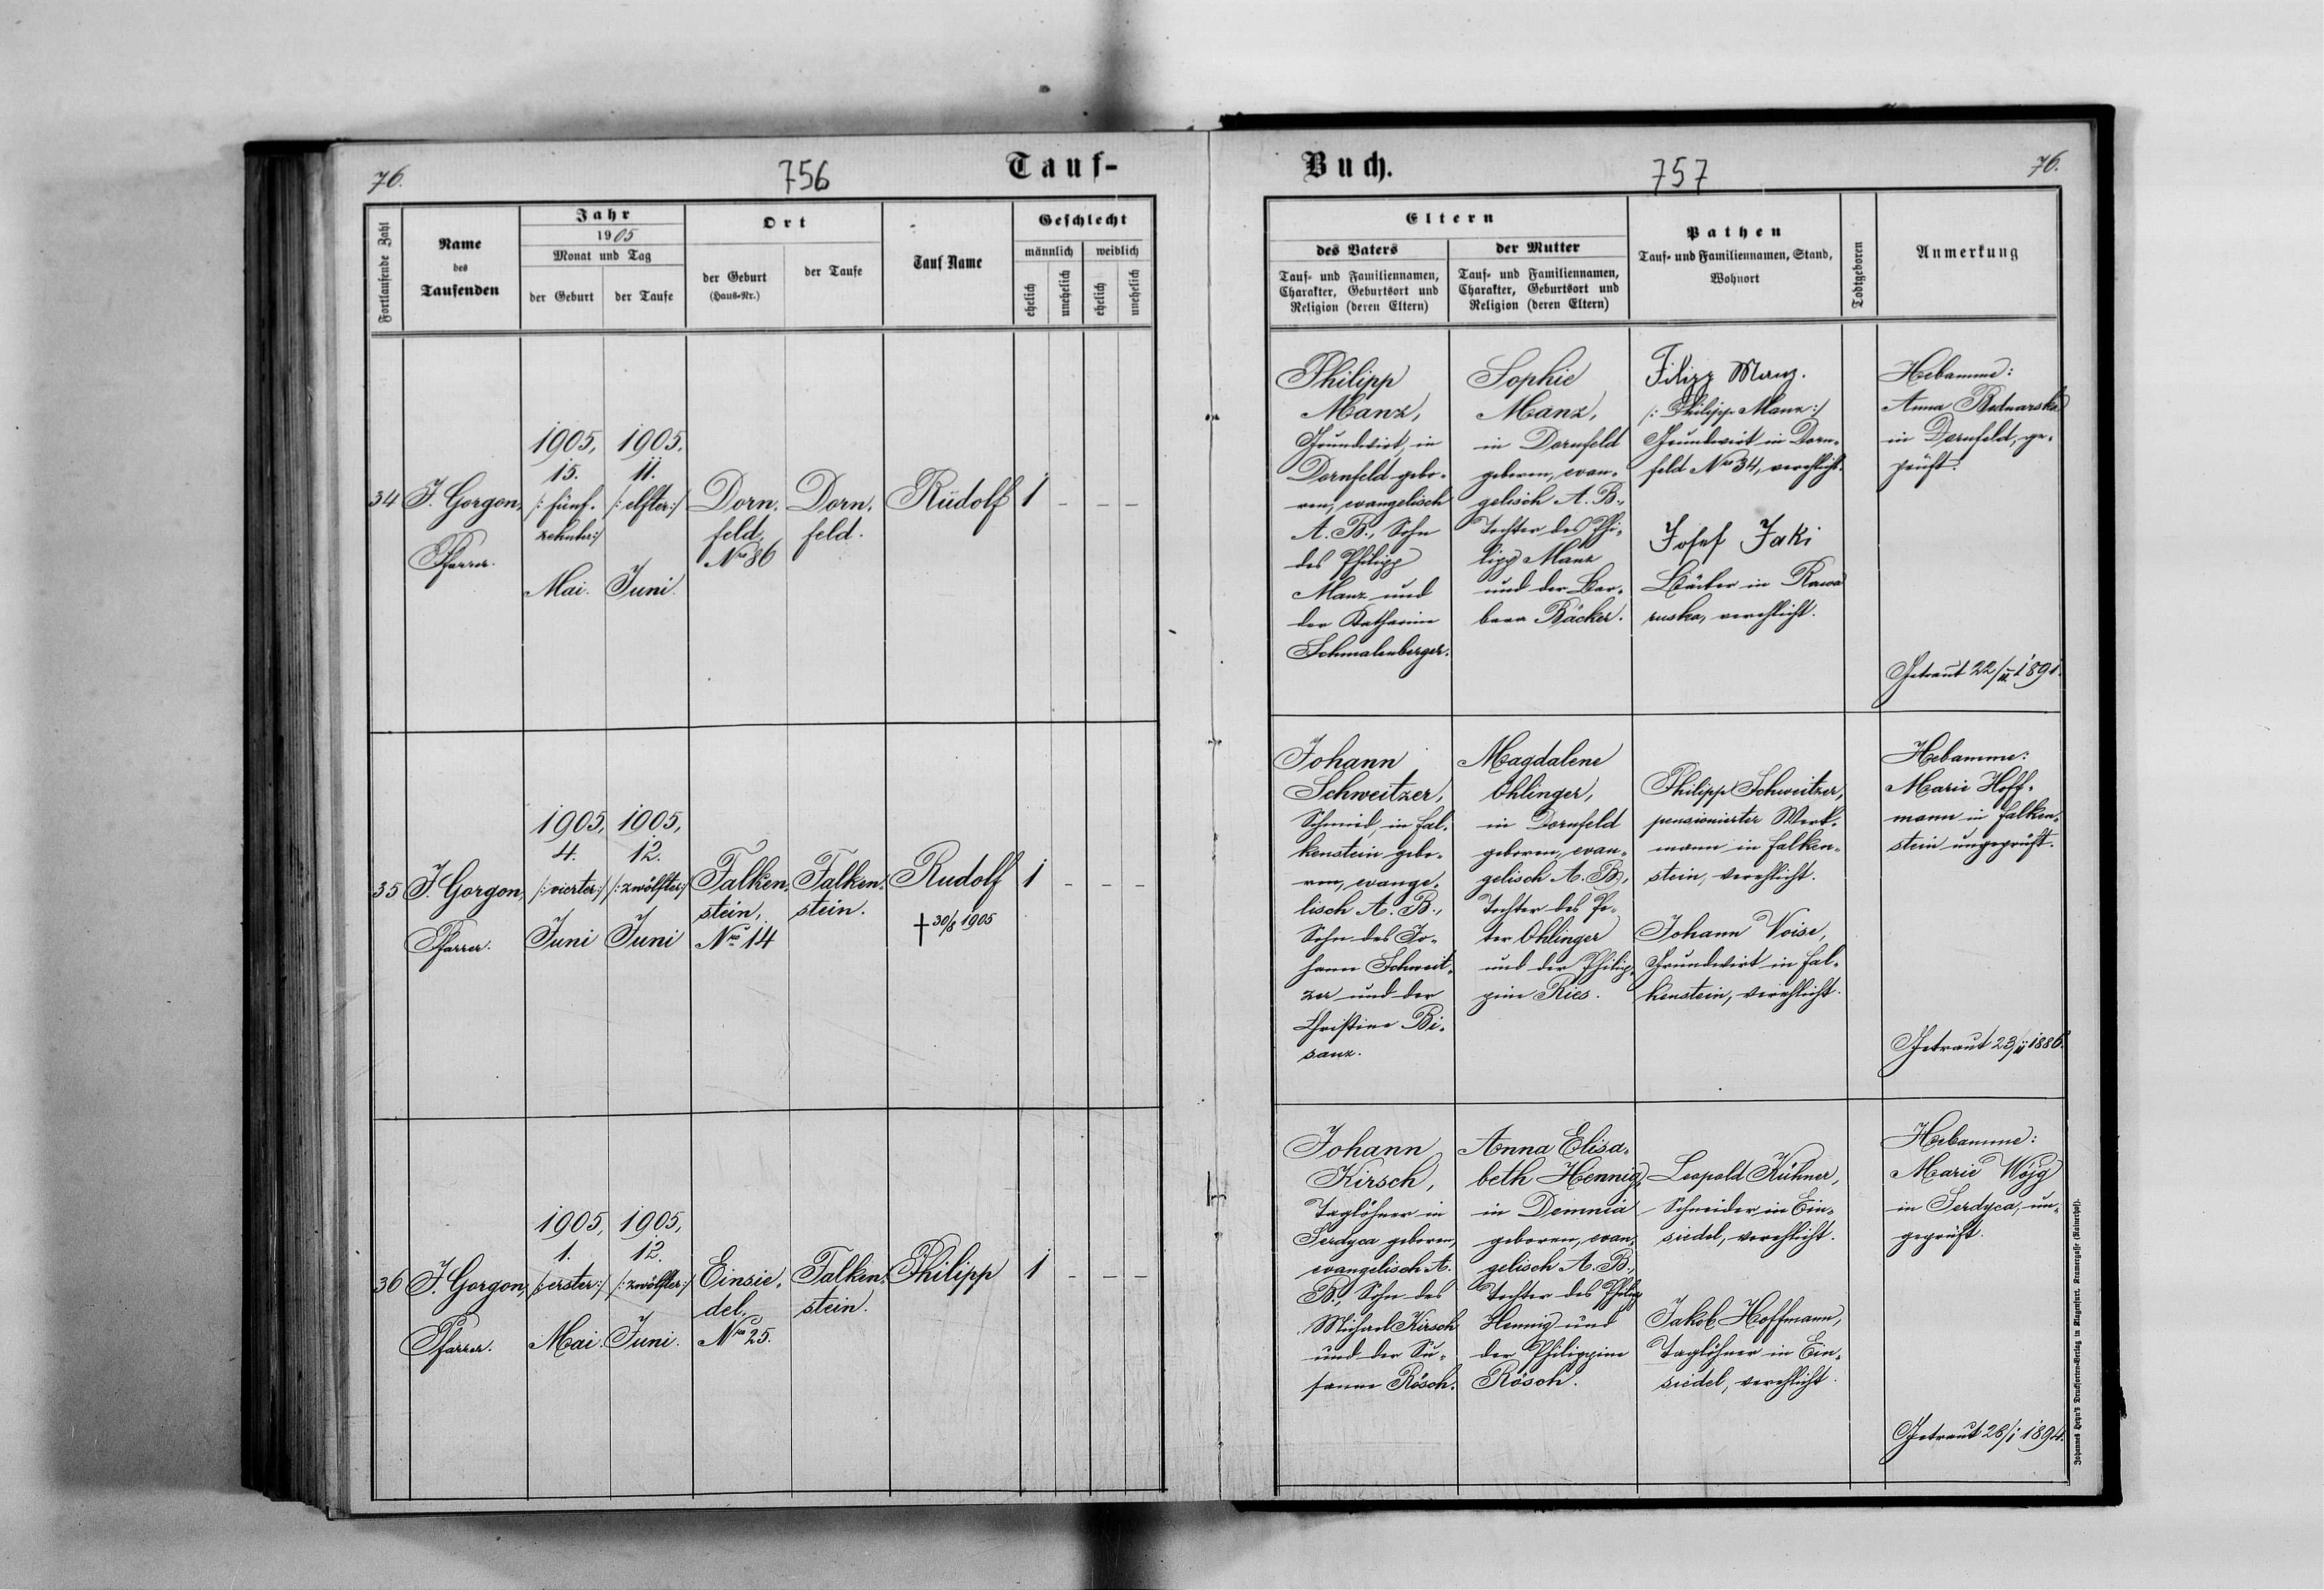 76.
756
Tauf-
Fortlaufende Zahl
Name
des
Taufenden
Jahr
1905
Monat und Tag
der Geburt
der Taufe
Ort
der Geburt
(Haus-Nr.)
der Taufe
Tauf Name
Geschlecht
männlich
weiblich
ehelich
unehelich
ehelich
unehelich
34
J. Gorgon,
Pfarrer.
1905,
15.
/: fünf-
zehnter :/
Mai.
1905.
11.
/: elfter :/
Juni.
Dorn-
feld,
Nro 86
Dorn-
feld.
Rudolf
1 - - -
35
J. Gorgon,
Pfarrer.
1905,
4.
/: vierter :/
Juni
1905,
12.
/: zwölfter :/
Juni
Falken-
stein,
Nro 14
Falken-
stein.
Rudolf
† 30/8 1905
1 - - -
36
J. Gorgon,
Pfarrer.
1905,
1.
/: erster :/
Mai.
1905,
12.
/: zwölfter :/
Juni.
Einsie-
del,
Nro 25.
Falken-
stein.
Philipp
1 - - -
Buch.
757
76.
Eltern
des Vaters
Tauf- und Familiennamen,
Charakter, Geburtsort und
Religion (deren Eltern)
der Mutter
Tauf- und Familiennamen,
Charakter, Geburtsort und
Religion (deren Eltern)
Pathen
Tauf- und Familiennamen, Stand,
Wohnort
Todtgeboren
Anmerkung
Philipp
Manz,
Grundwirt, in
Dornfeld gebo-
ren, evangelisch
A. B., Sohn
des Philipp
Manz und
der Katharine
Schmalenberger.
Sophie
Manz,
in Dornfeld
geboren, evan-
gelisch A. B.,
Tochter des Phi-
lipp Manz
und der Bar-
bara Bäcker.
Filipp Manz.
/: Philipp Manz :/
Grundwirt in Dorn-
feld Nro 34, verehlicht.
Josef Jaki
Bäcker in Rawa
ruska, verehlicht.
Hebamme:
Anna Bednarska
in Dornfeld, ge-
prüft.
Getraut 22/II 1891.
Johann
Schweitzer,
Schmied, in Fal-
kenstein gebo-
ren, evange-
lisch A. B.,
Sohn des Jo-
hann Schweit-
zer und der
Christine Bi-
sanz.
Magdalene
Ohlinger,
in Dornfeld
geboren, evan-
gelisch A. B.,
Tochter des Pe-
ter Ohlinger
und der Philip-
pine Ries.
Philipp Schweitzer,
pensionierter Werk-
mann in Falken-
stein, verehlicht.
Johann Voise,
Grundwirt in Fal-
kenstein, verehlicht.
Hebamme:
Marie Hoff-
mann in Falken-
stein ungeprüft.
Getraut 23/II 1886.
Johann
Kirsch,
Taglöhner in
Serdyca geboren,
evangelisch A.
B., Sohn des
Michael Kirsch
und der Su-
sanne Rösch.
Anna Elisa-
beth Hennig,
in Demnia
geboren, evan-
gelisch A. B.,
Tochter des Philipp
Hennig und
der Philippine
Rösch.
Leopold Kühner,
Schneider in Ein-
siedel, verehlicht.
Jakob Hoffmann,
Taglöhner in Ein-
siedel, verehlicht.
Hebamme:
Marie Wójg
in Serdyca, un-
geprüft.
Getraut 28/I 1894.
Johannes Heyn's Drucksorten-Verlag in Klagenfurt, Kramergasse (Rainerhof).